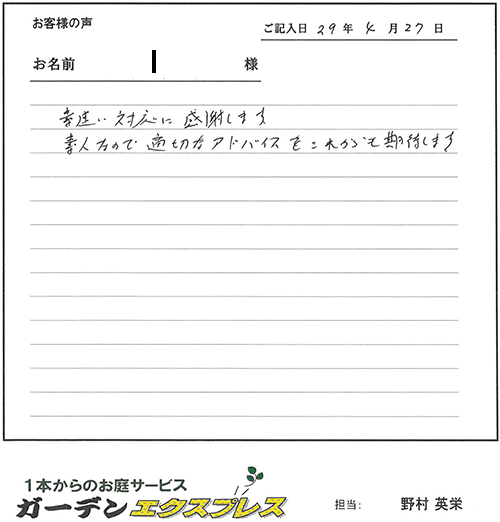 お客様の声
ご記入日 29年 4月27日
お名前 I 様
素速い対応に感謝します
素人なので適切なアドバイスをこれからも期待します
1本からのお庭サービス
ガーデンエクスプレス
担当: 野村 英栄